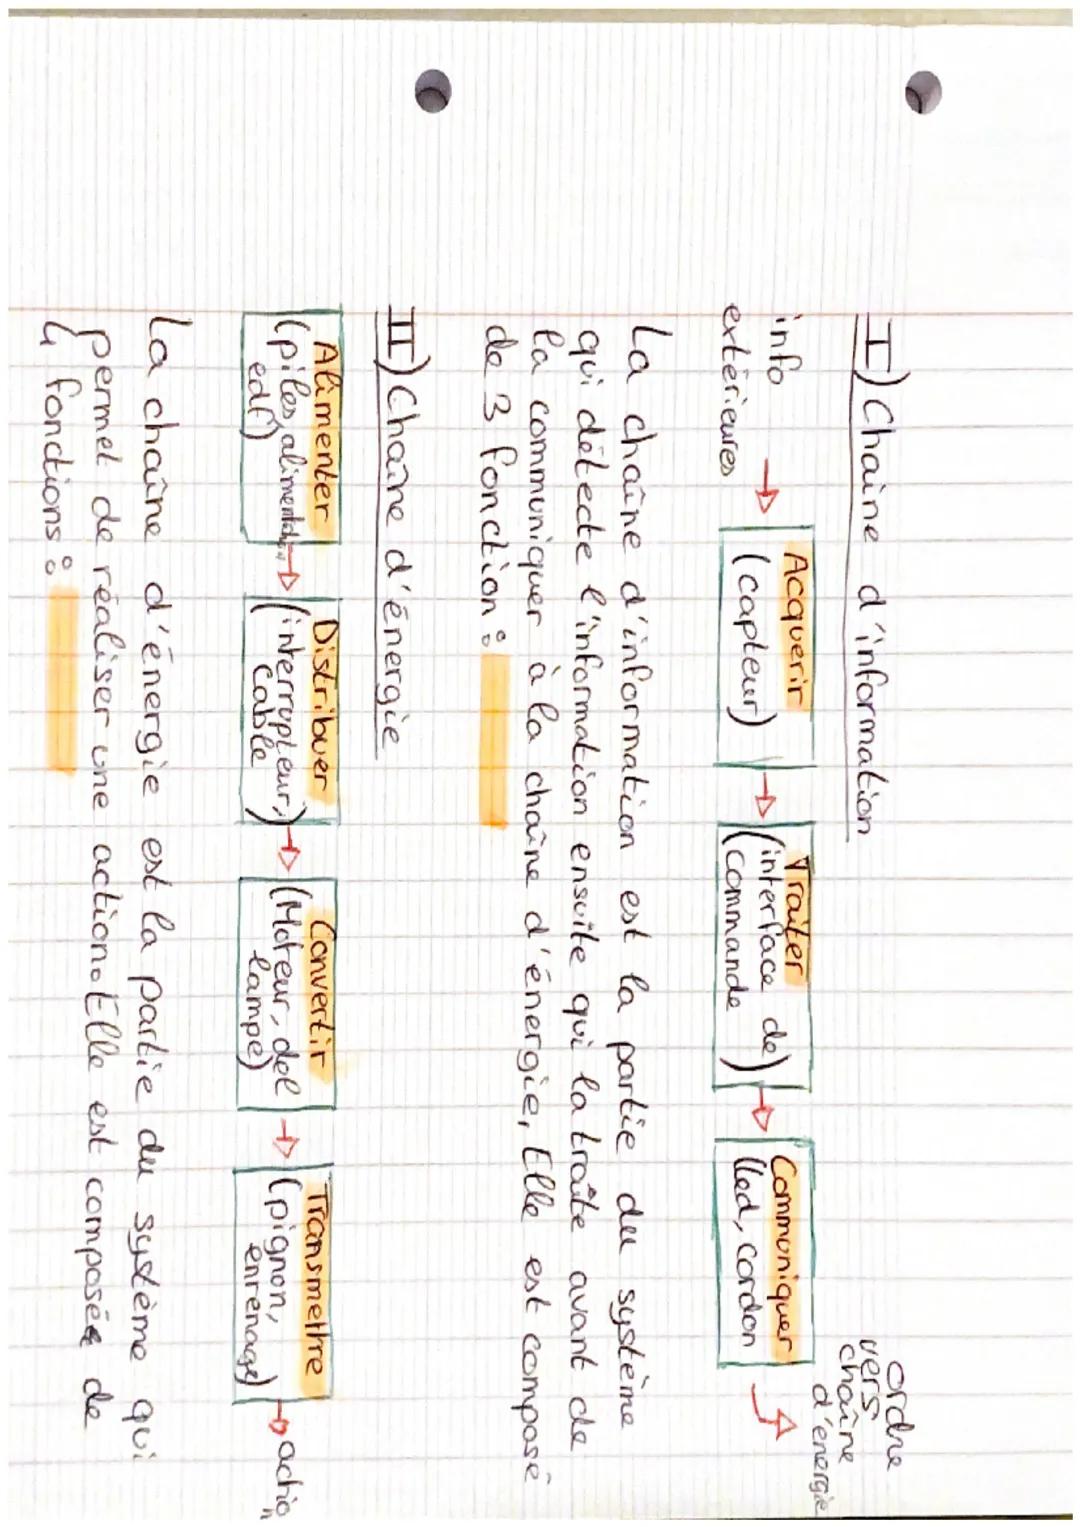 I) Chaine d'information
info extérieures → Acquerir (capteur) → Traiter (interface de commande) → Communiquer (led, cordon → ordre vers chaîne d'énergie
La chaîne d'information est la partie du système
qui détecte l'information ensuite qui la traite avant de
la communiquer à la chaîne d'énergie, Elle est composé
de 3 fonction :
II) Chaîne d'énergie
Alimenter (piles, alimentation edf) → Distribuer (interrupteur, cable) → Convertir (Moteur, del lampe) → Transmettre (pignon, enrenage) → action
La chaîne d'énergie est la partie du système qui
permet de réaliser une action. Elle est composée de
4 fonctions :